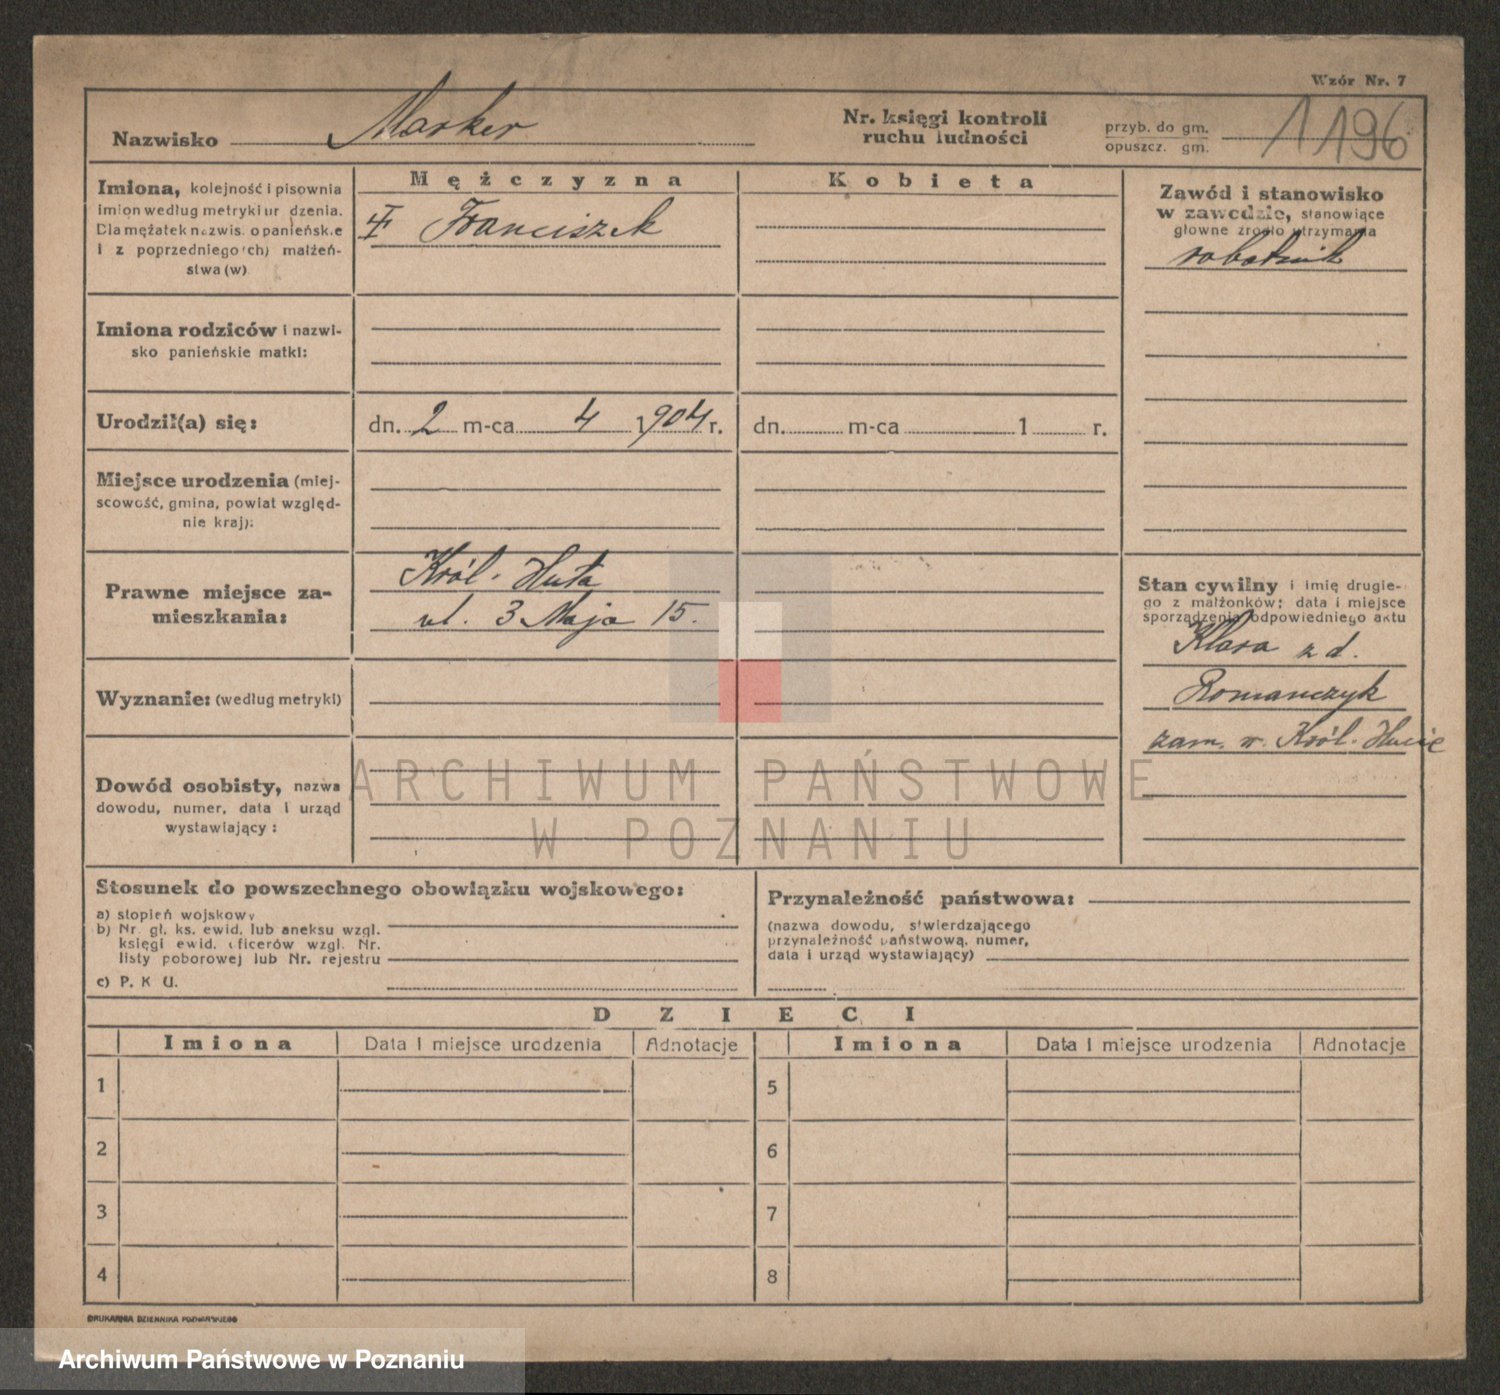 Wzór Nr. 7
Nazwisko Marker
Nr. księgi kontroli
ruchu ludności
przyb. do gm.
opuszcz. gm.
1196
Imiona, kolejność i pisownia
imion według metryki urodzenia.
Dla mężatek nazwisko panieńskie
i z poprzedniego(ch) małżeń-
stwa (w)
Mężczyzna
Franciszek
Kobieta
Zawód i stanowisko
w zawodzie, stanowiące
główne źródło utrzymania
robotnik
Imiona rodziców i nazwi-
sko panieńskie matki:
Urodził(a) się:
dn. 2 m-ca 4 1904 r.
dn. m-ca 1 r.
Miejsce urodzenia (miej-
scowość, gmina, powiat względ-
nie kraj):
Prawne miejsce za-
mieszkania:
Król. Huta
ul. 3 Maja 15.
Stan cywilny i imię drugie-
go z małżonków; data i miejsce
sporządzenia odpowiedniego aktu
Klara z d.
Romanczyk
zam. w Król. Hucie
Wyznanie: (według metryki)
Dowód osobisty, nazwa
dowodu, numer, data i urząd
wystawiający:
ARCHIWUM PAŃSTWOWE
W POZNANIU
Stosunek do powszechnego obowiązku wojskowego:
a) stopień wojskowy
b) Nr. gł. ks. ewid. lub aneksu wzgl.
księgi ewid. oficerów wzgl. Nr.
listy poborowej lub Nr. rejestru
c) P. K U.
Przynależność państwowa:
(nazwa dowodu, stwierdzającego
przynależność państwową, numer,
data i urząd wystawiający)
DZIECI
Imiona Data i miejsce urodzenia Adnotacje Imiona Data i miejsce urodzenia Adnotacje
1 5
2 6
3 7
4 8
DRUKARNIA DZIENNIKA POZNAŃSKIEGO
Archiwum Państwowe w Poznaniu